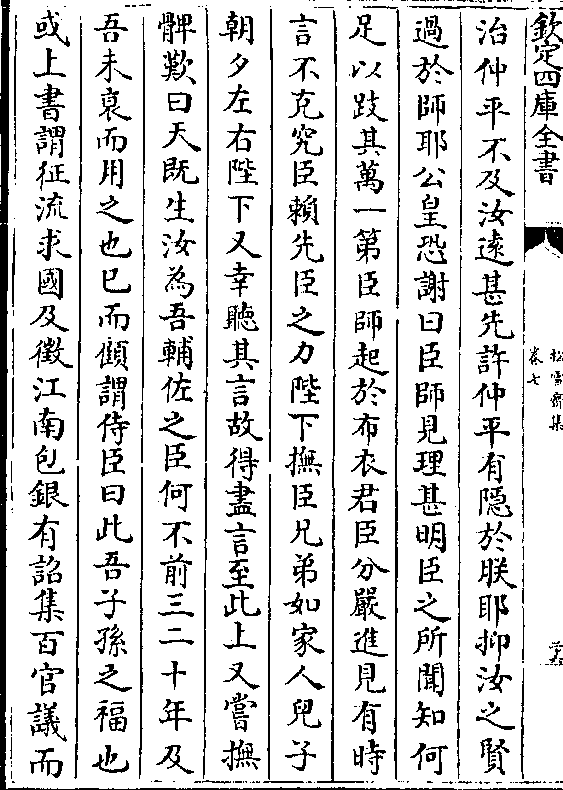 欽定四庫全書
松雪齋集
卷七
治仲平不及汝逺甚先許仲平有隠於朕耶抑汝之賢
過於師耶公皇恐謝曰臣師見理甚明臣之所聞知何
足以跂其萬一第臣師起於布衣君臣分嚴進見有時
言不克究臣賴先臣之力陛下撫臣兄弟如家人兒子
朝夕左右陛下又幸聽其言故得盡言至此上又嘗撫
髀歎曰天既生汝為吾輔佐之臣何不前三二十年及
吾未衰而用之也已而顧謂侍臣曰此吾子孫之福也
或上書謂征流求國及徵江南包銀有詔集百官議而